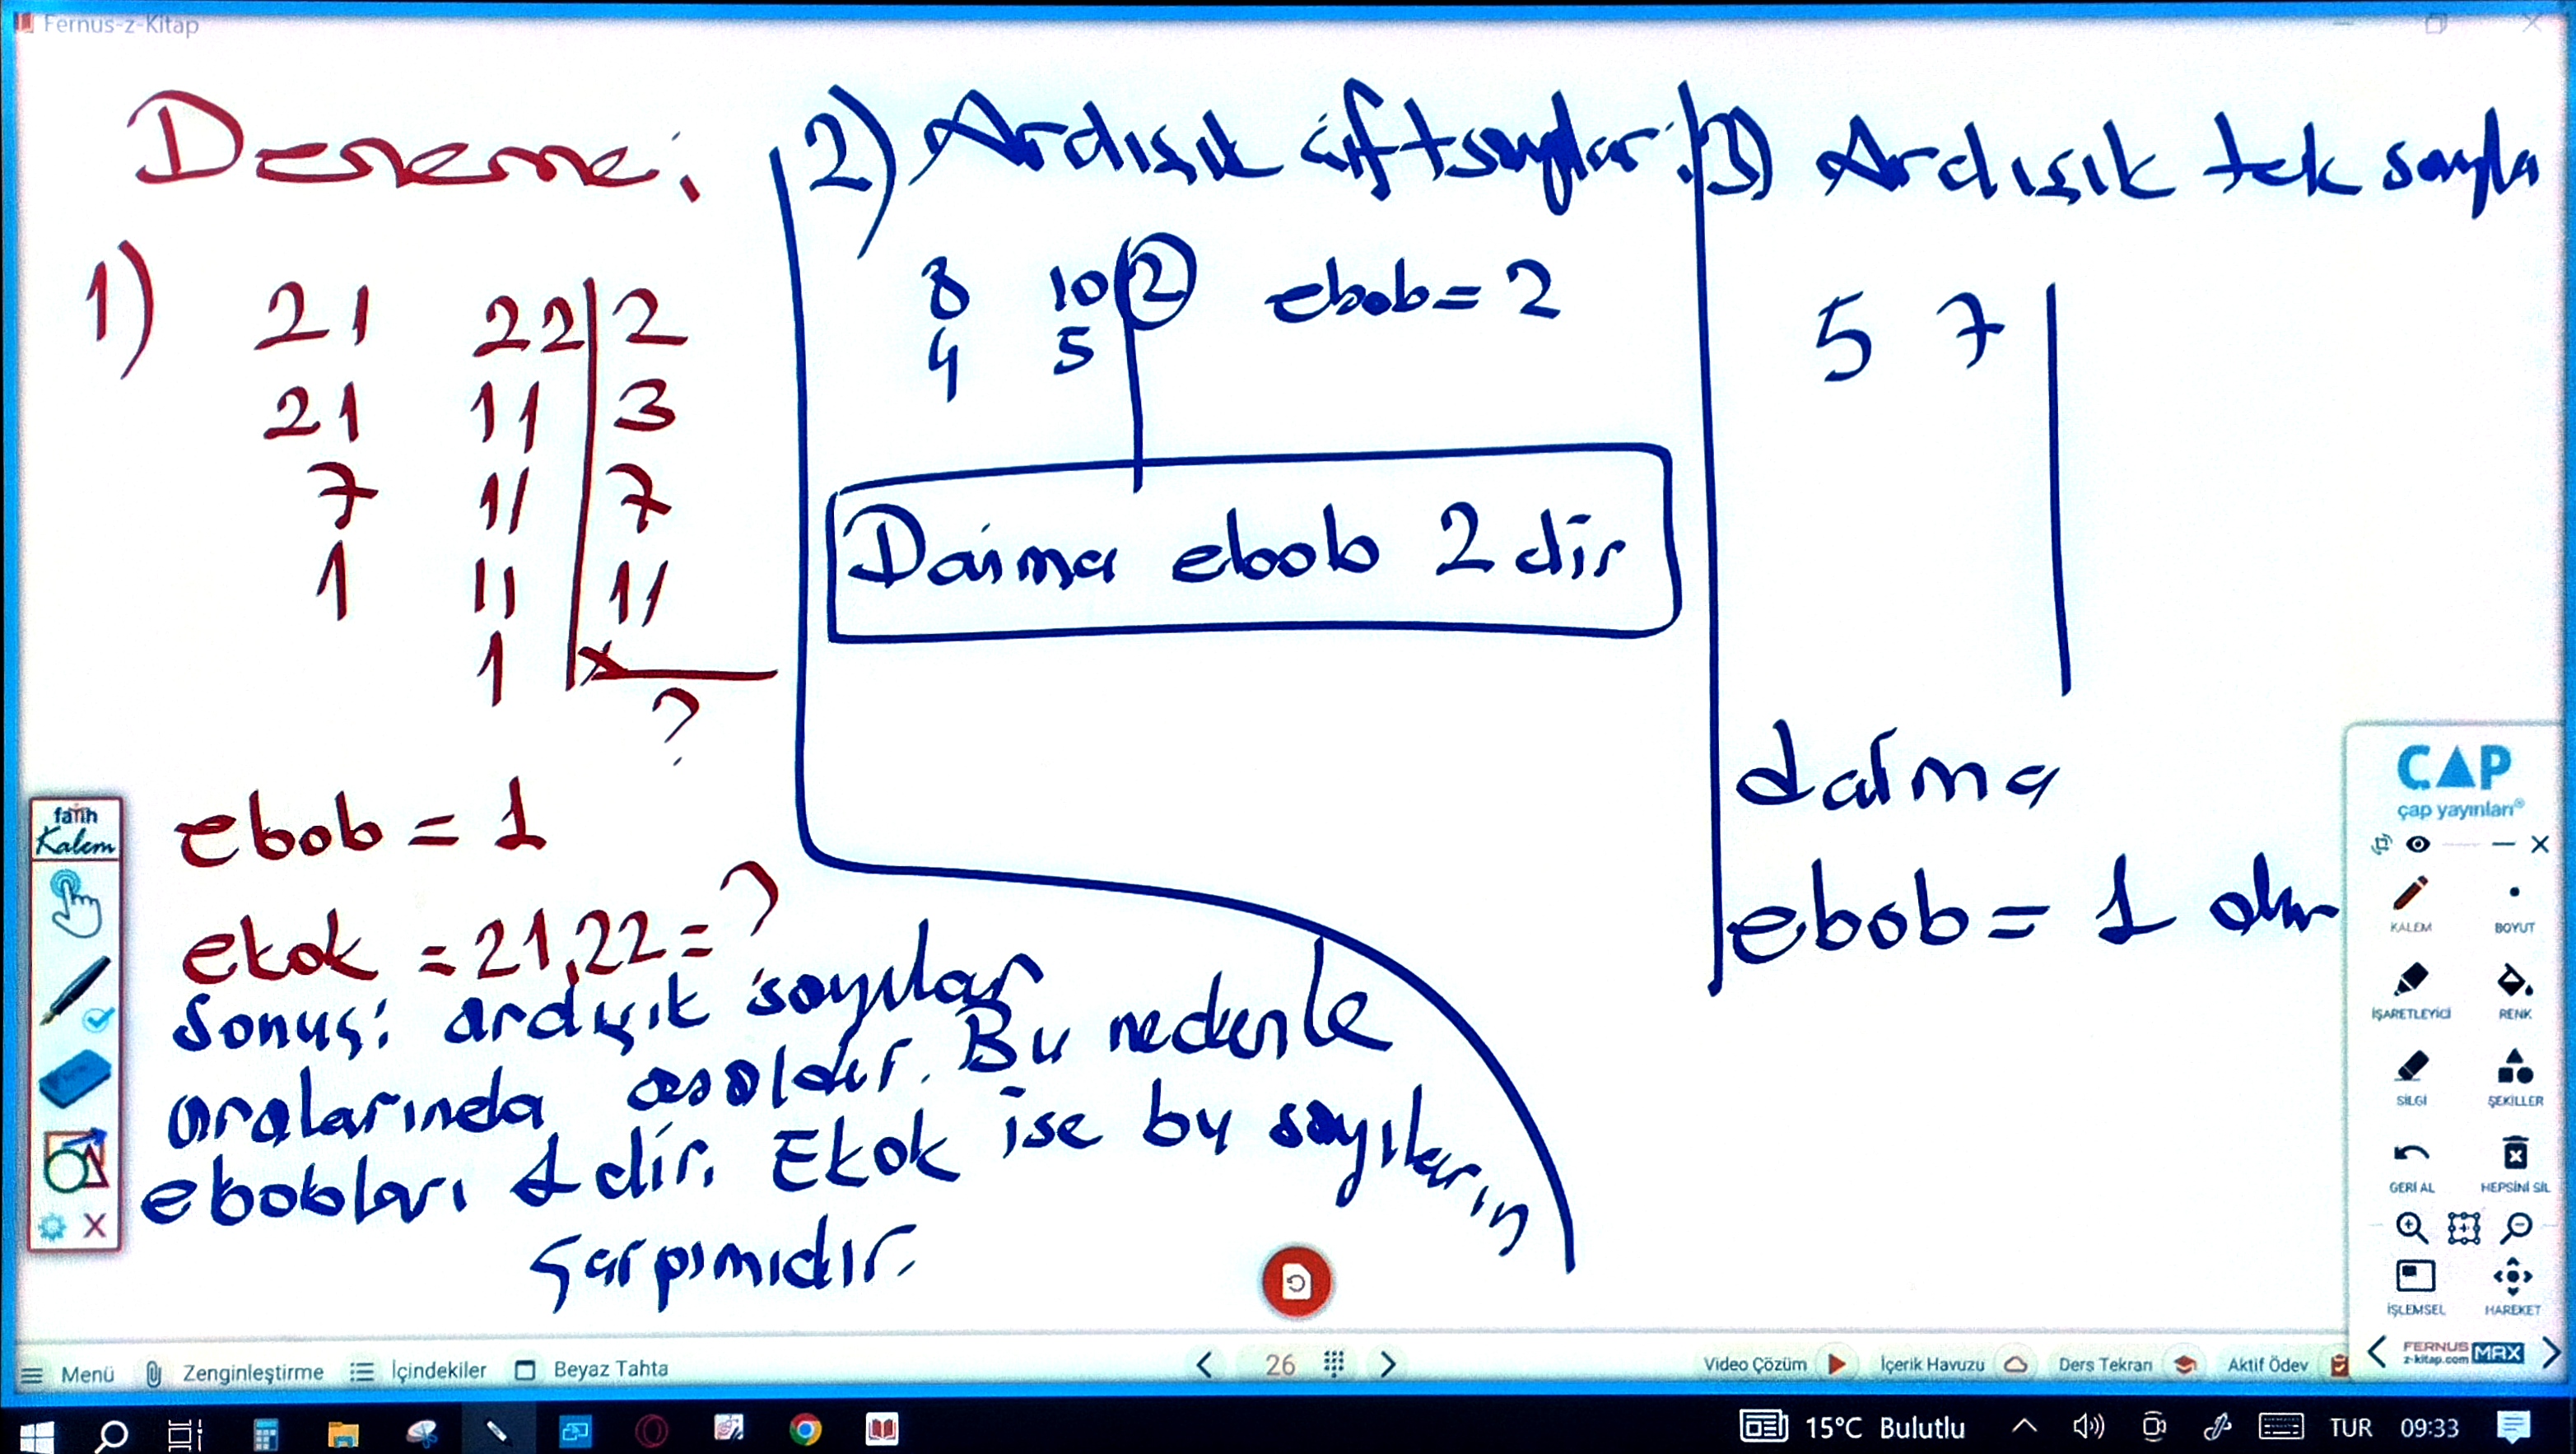 Fernus-z-Kitap
Deneme:
1)
21 22 2
21 11 3
7 11 7
1 11 11
1 x
?
ebob = 1
ekok = 21.22 = ?
Sonuç: ardışık sayılar
aralarında asaldır. Bu nedenle
ebobları 1 dir. Ekok ise bu sayıların
çarpımıdır.
2) Ardışık çift sayılar:
8 10 2 ebob = 2
4 5
Daima ebob 2 dir
3) Ardışık tek sayıla
5 7
daima
ebob = 1 olur
fatih
Kalem
ÇAP
çap yayınları®
KALEM BOYUT
İŞARETLEYİCİ RENK
SİLGİ ŞEKİLLER
GERİ AL HEPSİNİ SİL
İŞLEMSEL HAREKET
FERNUS
z-kitap.com MAX
Menü Zenginleştirme İçindekiler Beyaz Tahta 26 Video Çözüm İçerik Havuzu Ders Tekrarı Aktif Ödev
15°C Bulutlu TUR 09:33